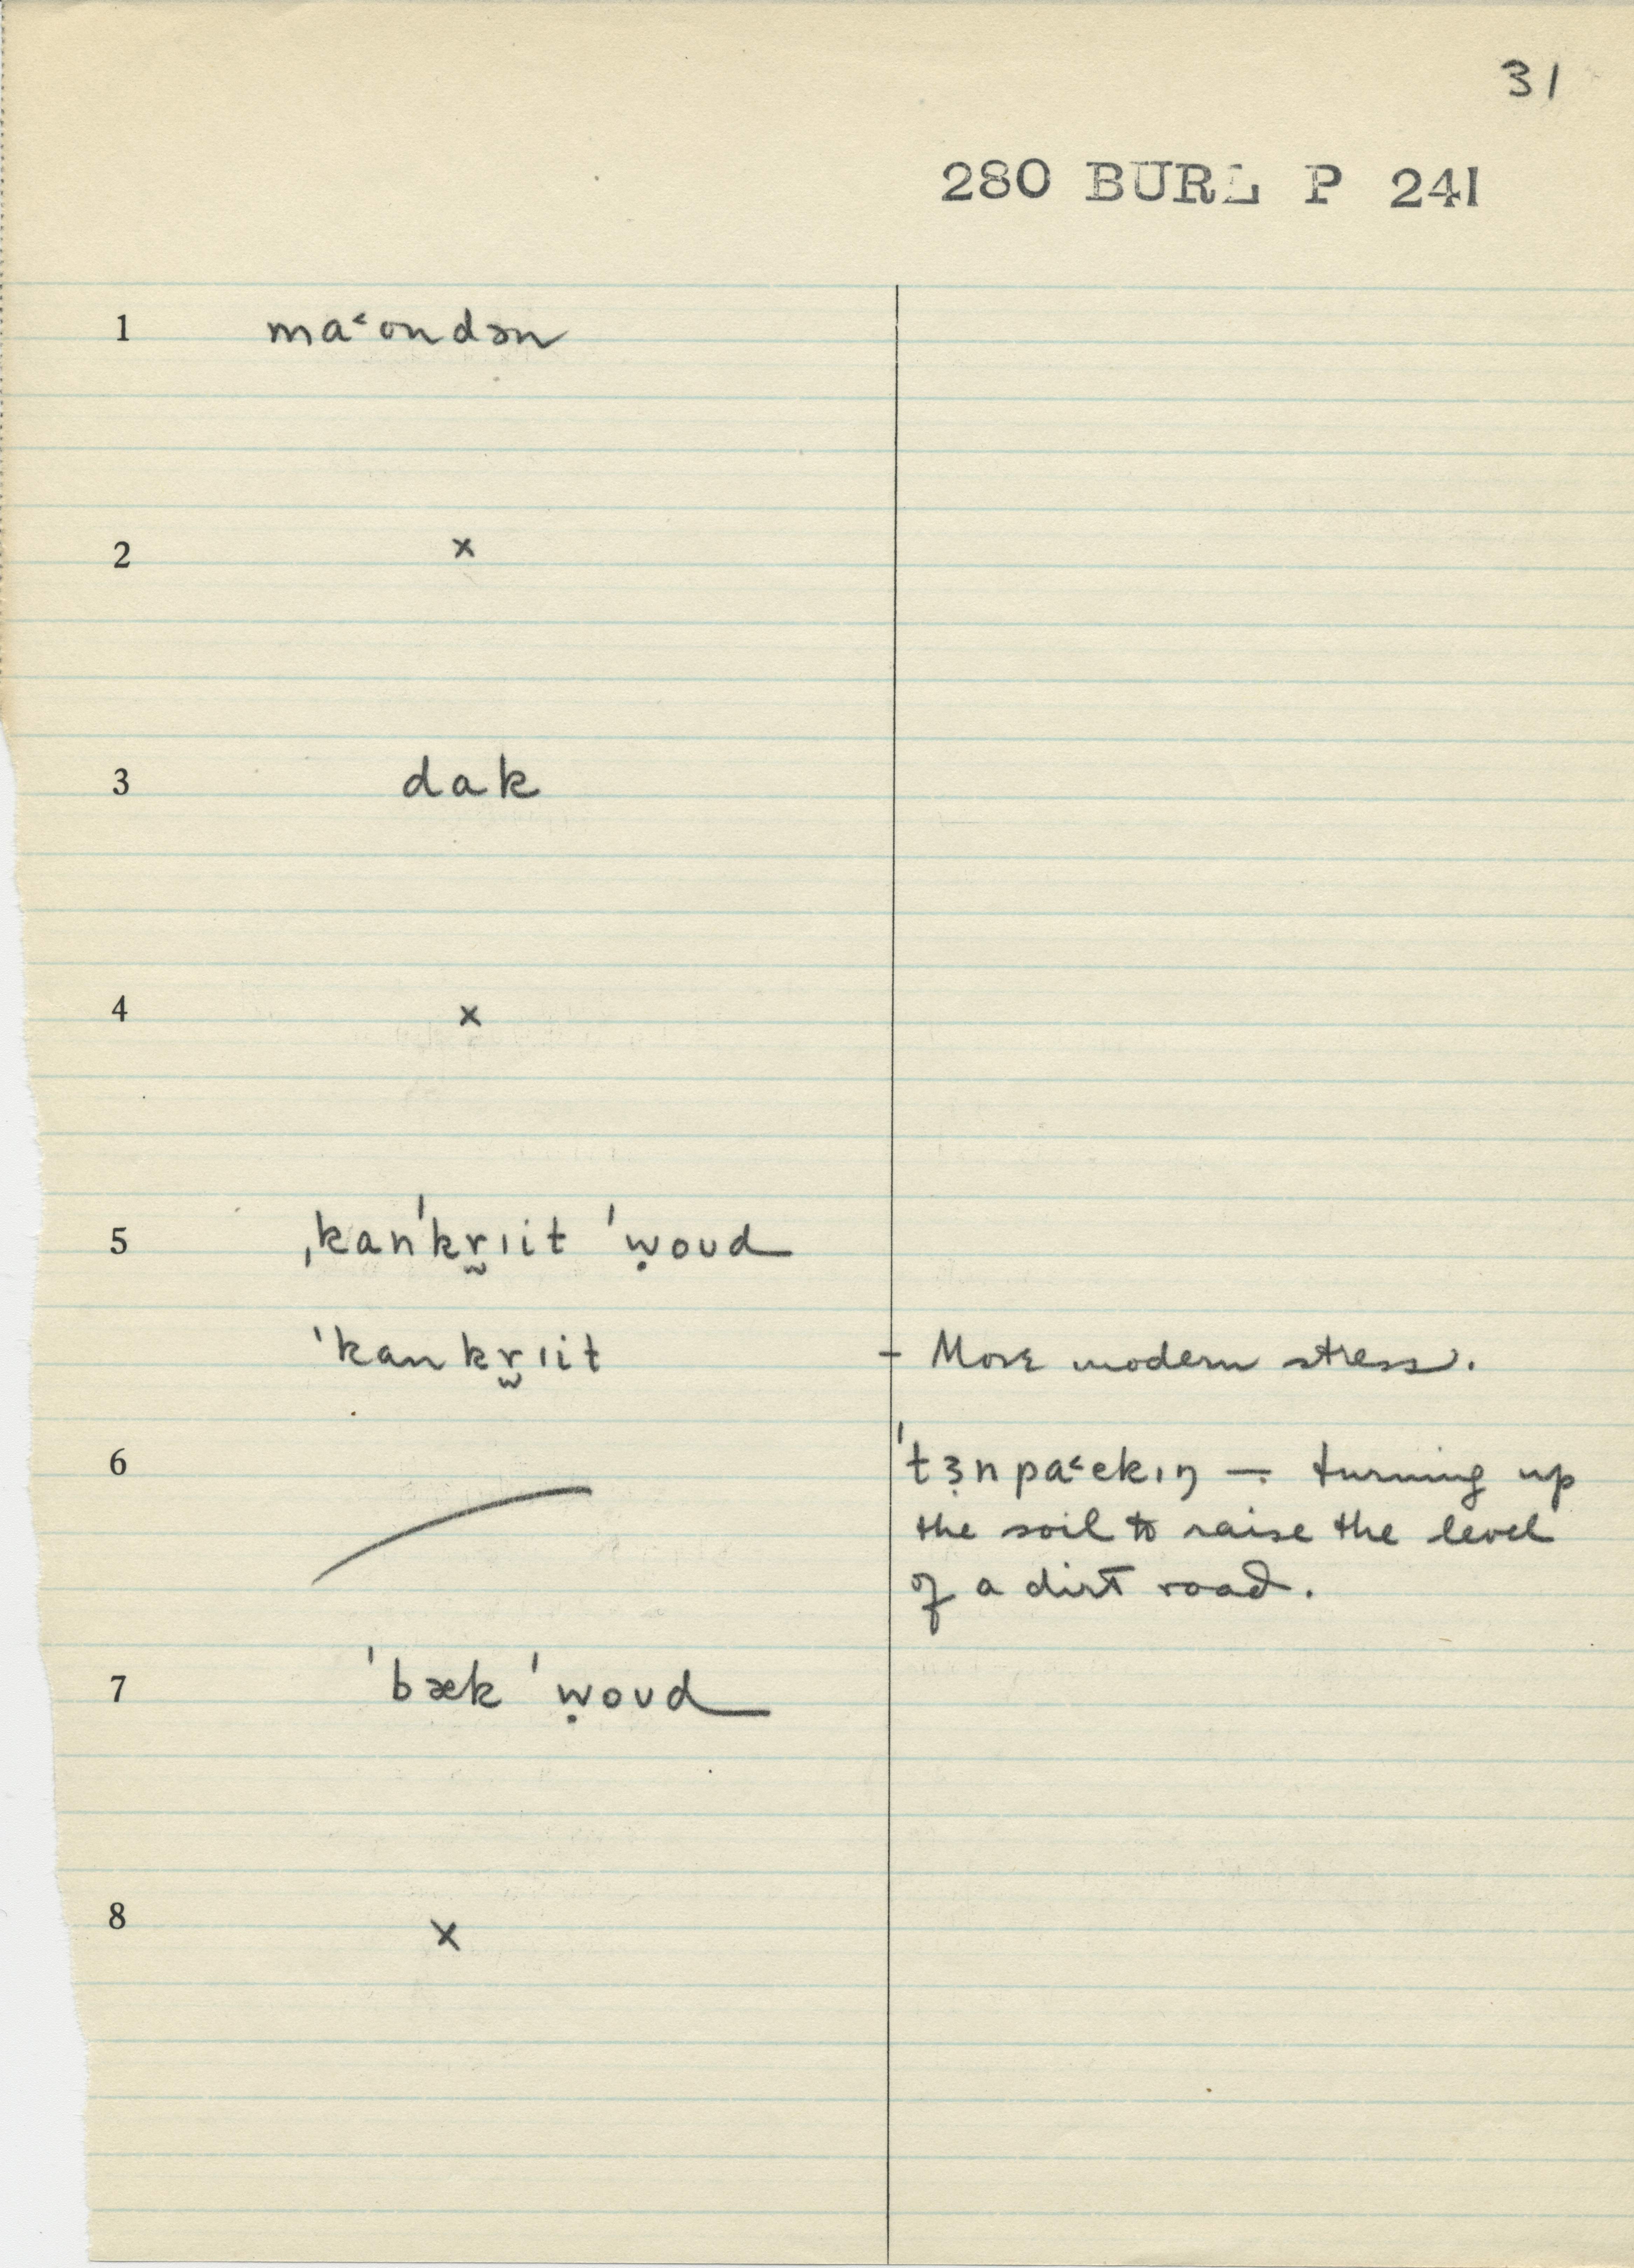 31
280 BURL P 241
1 ma˂ondən
2 x
3 dak
4 x
5 ˌkanˈkr̬ɪit ˈẉoʊd
ˈkankr̬ɪit – More modern stress.
6 ˈtɜ̣npa˂ekɪŋ – turning up
the soil to raise the level
of a dirt road.
7 ˈbæk ˈẉoʊd
8 x